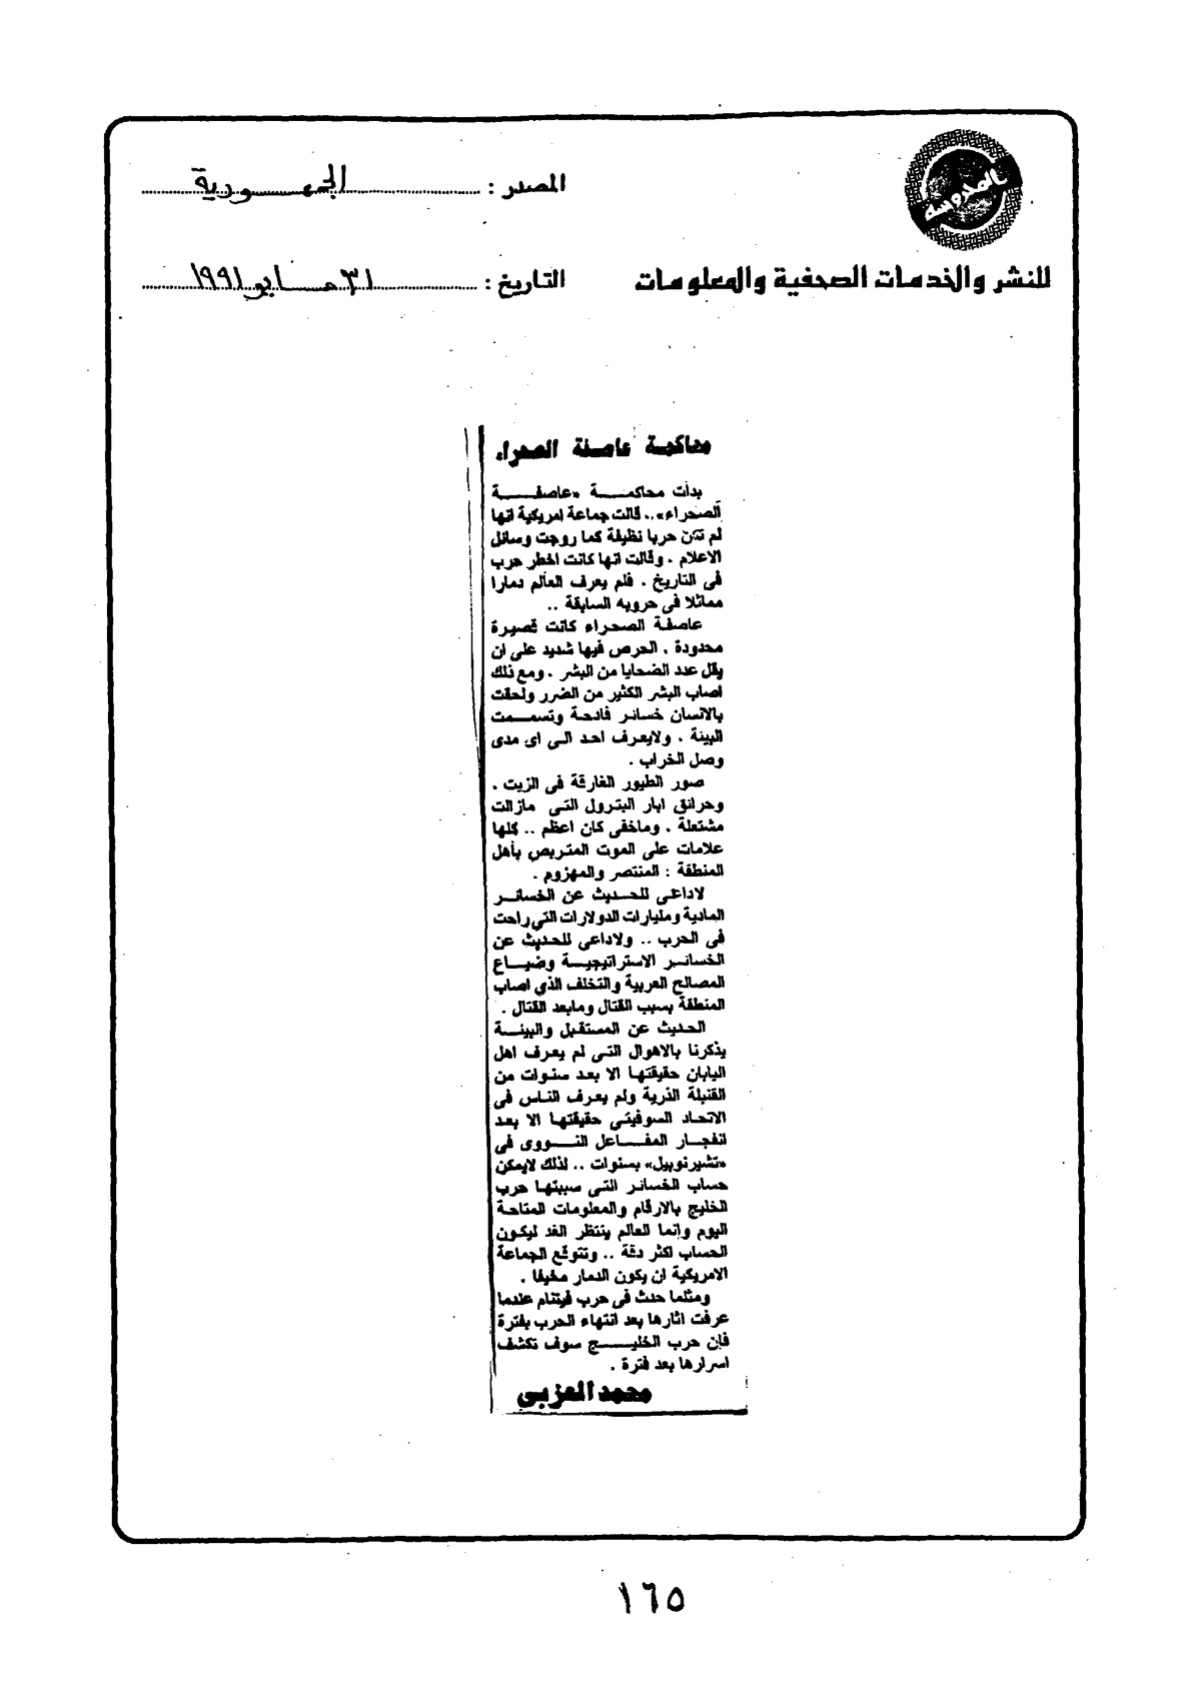 المصدر : الجمهورية
للنشر والخدمات الصحفية والمعلومات
التاريخ : ٣١ مايو ١٩٩١
محاكمة عاصفة الصحراء
بدأت محاكمة «عاصفة
الصحراء».. قالت جماعة امريكية انها
لم تكن حربا نظيفة كما روجت وسائل
الاعلام . وقالت انها كانت اخطر حرب
فى التاريخ . فلم يعرف العالم دمارا
مماثلا فى حروبه السابقة ..
عاصفة الصحراء كانت قصيرة
محدودة . الحرص فيها شديد على ان
يقل عدد الضحايا من البشر . ومع ذلك
اصاب البشر الكثير من الضرر ولحقت
بالانسان خسائر فادحة وتسممت
البيئة . ولايعرف احد الى اى مدى
وصل الخراب .
صور الطيور الغارقة فى الزيت .
وحرائق ابار البترول التى مازالت
مشتعلة . وماخفى كان اعظم .. كلها
علامات على الموت المتربص بأهل
المنطقة : المنتصر والمهزوم .
لاداعى للحديث عن الخسائر
المادية ومليارات الدولارات التي راحت
فى الحرب .. ولاداعى للحديث عن
الخسائر الاستراتيجية وضياع
المصالح العربية والتخلف الذي اصاب
المنطقة بسبب القتال ومابعد القتال .
الحديث عن المستقبل والبيئة
يذكرنا بالاهوال التى لم يعرف اهل
اليابان حقيقتها الا بعد سنوات من
القنبلة الذرية ولم يعرف الناس فى
الاتحاد السوفيتى حقيقتها الا بعد
انفجار المفاعل النووى فى
«تشيرنوبيل» بسنوات .. لذلك لايمكن
حساب الخسائر التى سببتها حرب
الخليج بالارقام والمعلومات المتاحة
اليوم وانما العالم ينتظر الغد ليكون
الحساب اكثر دقة .. وتتوقع الجماعة
الامريكية ان يكون الدمار مخيفا .
ومثلما حدث فى حرب فيتنام عندما
عرفت اثارها بعد انتهاء الحرب بفترة
فإن حرب الخليج سوف تكشف
اسرارها بعد فترة .
محمد العزبي
١٦٥